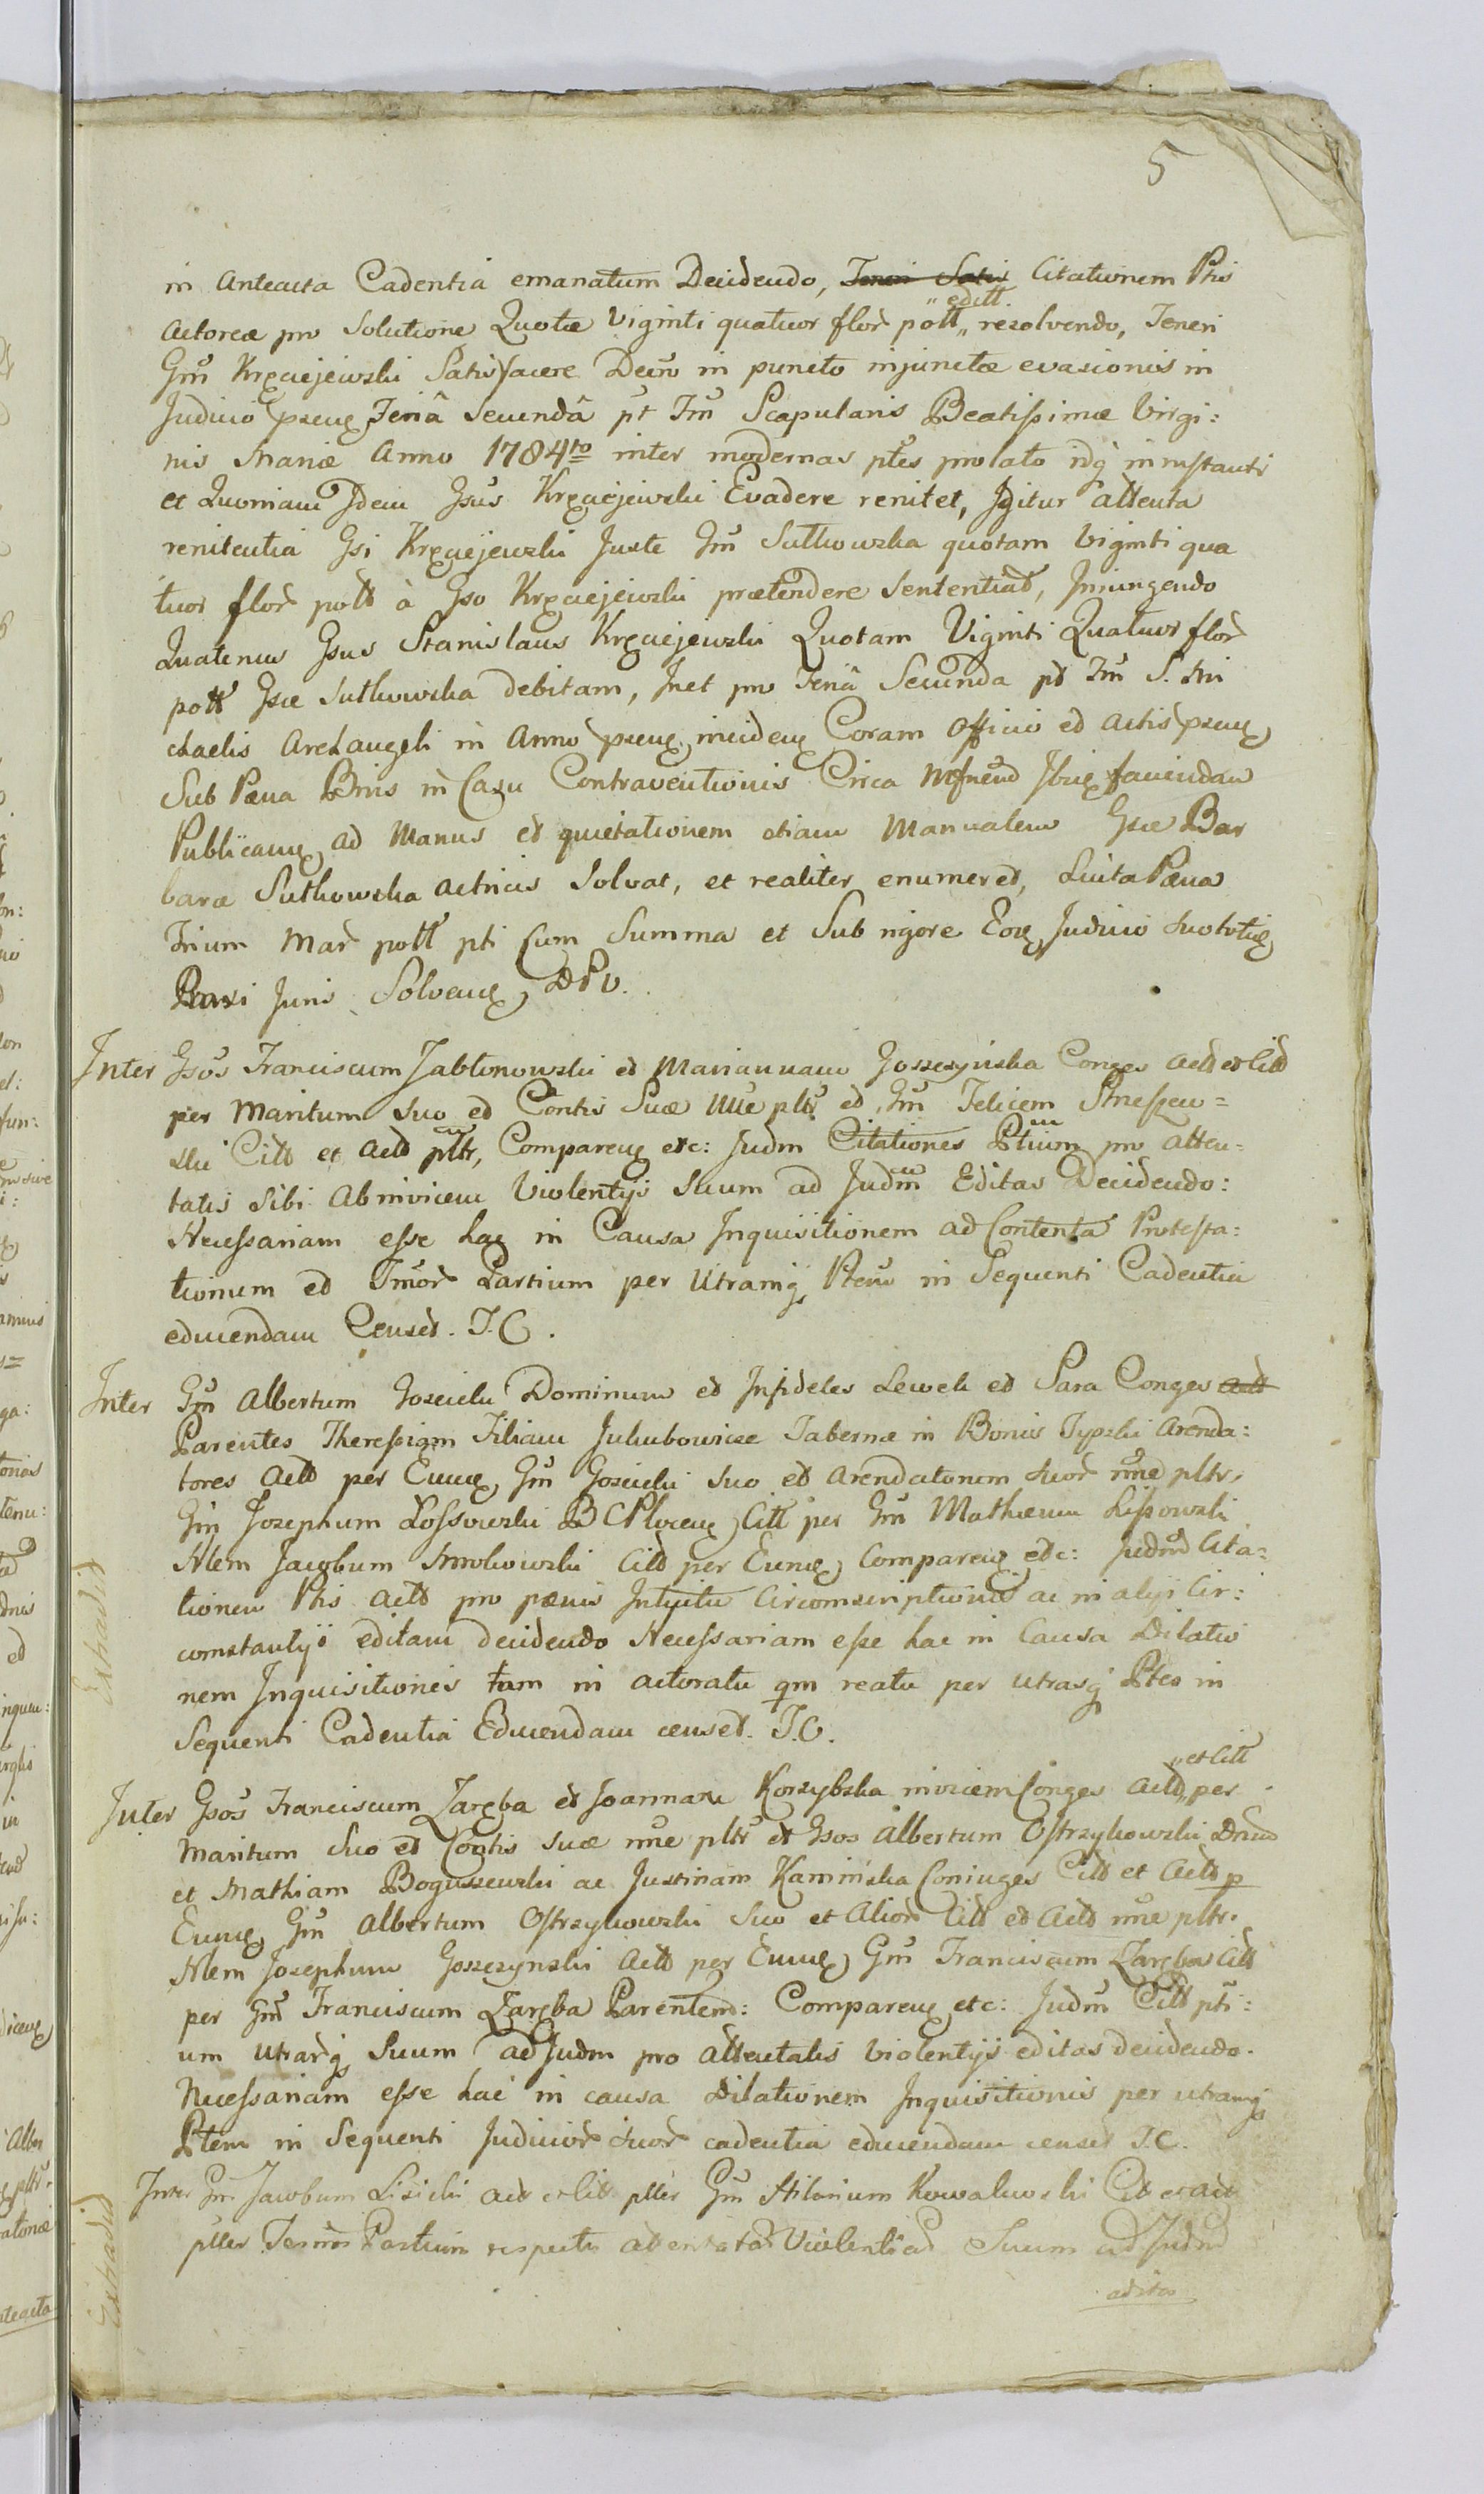 5
in Anteacta Cadentia emanatum Decidendo, Teneri Satis Citationem Ptis
Actoreæ pro Solutione Quotæ Viginti quatuor flor poll „editt. resolvendo, Teneri
Gm̃ Kręciejewski Satisfacere Decto in puncto injunctæ evasionis in
Judicio pseng Feriâ Secundâ pt Fm̃ Scapularis Beatissimæ Virgi:
nis Mariæ Anno 1784to inter modernas ptes prolato idq̃ in instanti
et Quoniam Idem Gsus Kręciejewski Evadere renitet, Igitur attenta
renitentia Gsi Kręciejewski Juste Gm̃ Sutkowska quotam Viginti qua
tuor flor poll à Gso Kręciejewski prætendere Sententiat, Iniungendo
Quatenus Gsus Stanislaus Kręciejewski Quotam Viginti Quatuor flor
poll Gsæ Sutkowska debitam, Inet pro Feriâ Secunda pt Fm̃ S. Mi
chaelis Archangeli in Anno pseng incideng Coram Officio et Actis pseng
Sub Pæna Bnis in Casu Contraventionis Circa Mfnend Ibng faciendam
Publicang ad Manus et quietationem etiam Manualem Gsæ Bar
baræ Sutkowska Actricis Solvat, et realiter enumeret, Luita Pæna
Trium Mar poll pti Cum Summa et Sub rigore Eoz Judicio
Parxi Juris Solveng DPV.
Inter Gsos Franciscum Jabłonowski et Mariannam Goszczyńska Conges Actt et Citt
per Maritum Suo et Contis Suæ nne pltr et Gm̃ Felicem
ski Citt et Actt pltr, Compareng etc: Judm Citationes Ptium pro atten-
tatis Sibi Abinvicem Violentijs Suum ad Judm Editas Decidendo:
Necessariam esse hac in Causa Inquisitionem ad Contenta Protesta:
tionum et Tmor Partium per Utramq̃ Ptem in Sequenti Cadentia
educendam Censet. T.C.
Inter Gm̃ Albertum Goscicki Dominum et Infideles Lewek et Sara Conges Actt
Parentes Theressiam Filiam Jakubowicze Tabernæ in Bonis Typski Arenda:
tores Actt per Eunng Gm̃ Goscicki Suo et Arendatorum Suor nne pltr,
Gm̃ Josephum Lossowski BCPloceng Citt per Gm̃ Mathæum Lissowski
Nlem Jacobum Smokowski Citt per Eunng Compareng etc: Judm Cita:
tionem Ptis Actt pro pænis Intuitu Circomscriptionis ac in alijs Cir:
comstantijs editam decidendo Necessariam esse hac in Causa Dilatio
nem Inquisitionis tam in actoratu qm reatu per utrasq̃ Ptes in
Sequenti Cadentia Educendam censet. T.C.
Inter Gsos Franciscum Zaręba et Joannam Korzybska invicem Conges Actt „et Citt per
Maritum Suo et Contis Suæ nne pltr et Gsos Albertum Ostrzykowski Dnum
et Mathiam Boguszewski ac Justinam Kamińska Coniuges Citt et Actt p
Eunng Gm̃ Albertum Ostrzykowski Suo et Alior Citt et Actt nne pltr.
Nlem Josephum Goszczynski Actt per Eunng Gm̃ Franciscum Zaręba Citt
per Gm̃ Franciscum Zaręba Parentem: Compareng etc: Judm Citt pti:
um Utrarq̃ Suum ad Judm pro Attentatis Violentijs editas decidendo.
Necessariam esse hac in causa Dilationem Inquisitionis per utramq̃
Ptem in Sequenti Judicior Suor cadentia educendam censet T.C.
Inter Gm̃ Jacobum Lisicki Act et Citt plter Gm̃ Hilarium Kowalewski Cit et act
plter Termos Partium respectu Violentiar Suum ad Judm
aditas
Extradit
Extradit